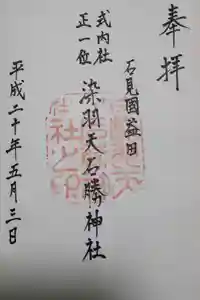 奉拝
石見國益田
式内社
正一位
染羽天石勝神社
平成二十年五月三日